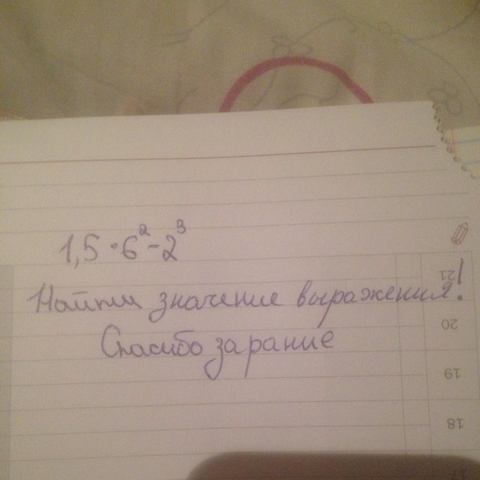 1,5 · 6² - 2³
Найти значение выражения!
Спасибо зарание
21
20
19
18